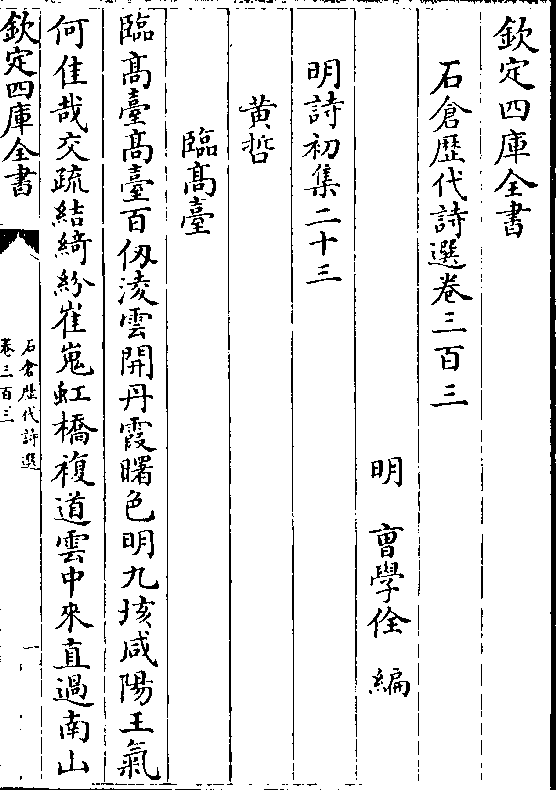 欽定四庫全書
石倉歴代詩選卷三百三
明 曺學佺 編
明詩初集二十三
黄哲
臨髙臺
臨髙臺髙臺百仭淩雲開丹霞曙色明九垓咸陽王氣
何佳哉交疏結綺紛崔嵬虹橋複道雲中來直過南山
欽定四庫全書
石倉歴代詩選
卷三百三
一